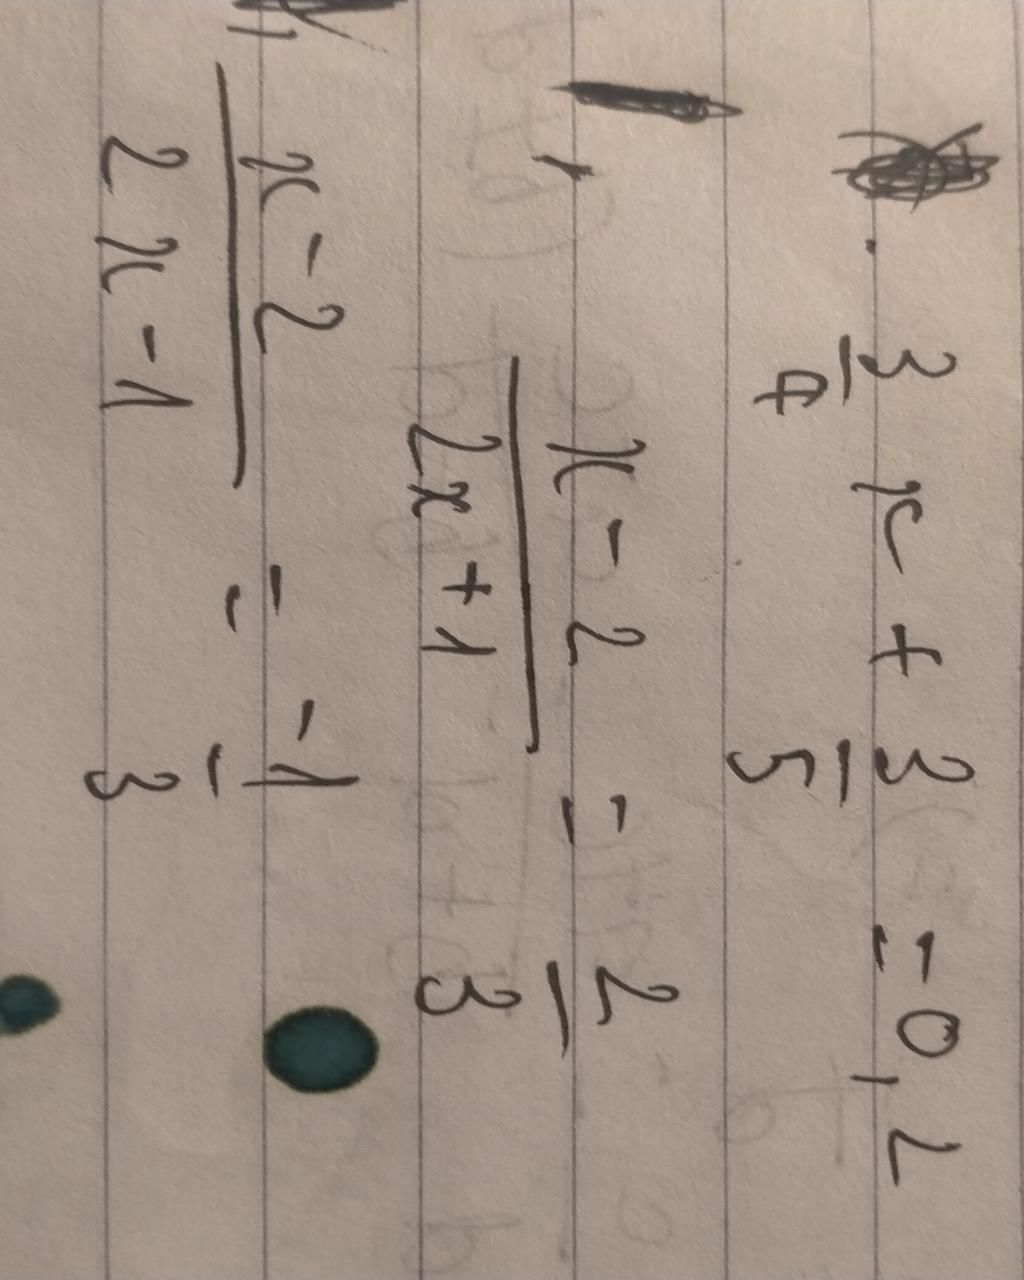 3/4 x + 3/5 = 0,2
(x - 2)/(2x + 1) = 2/3
(x - 2)/(2x - 1) = -1/3